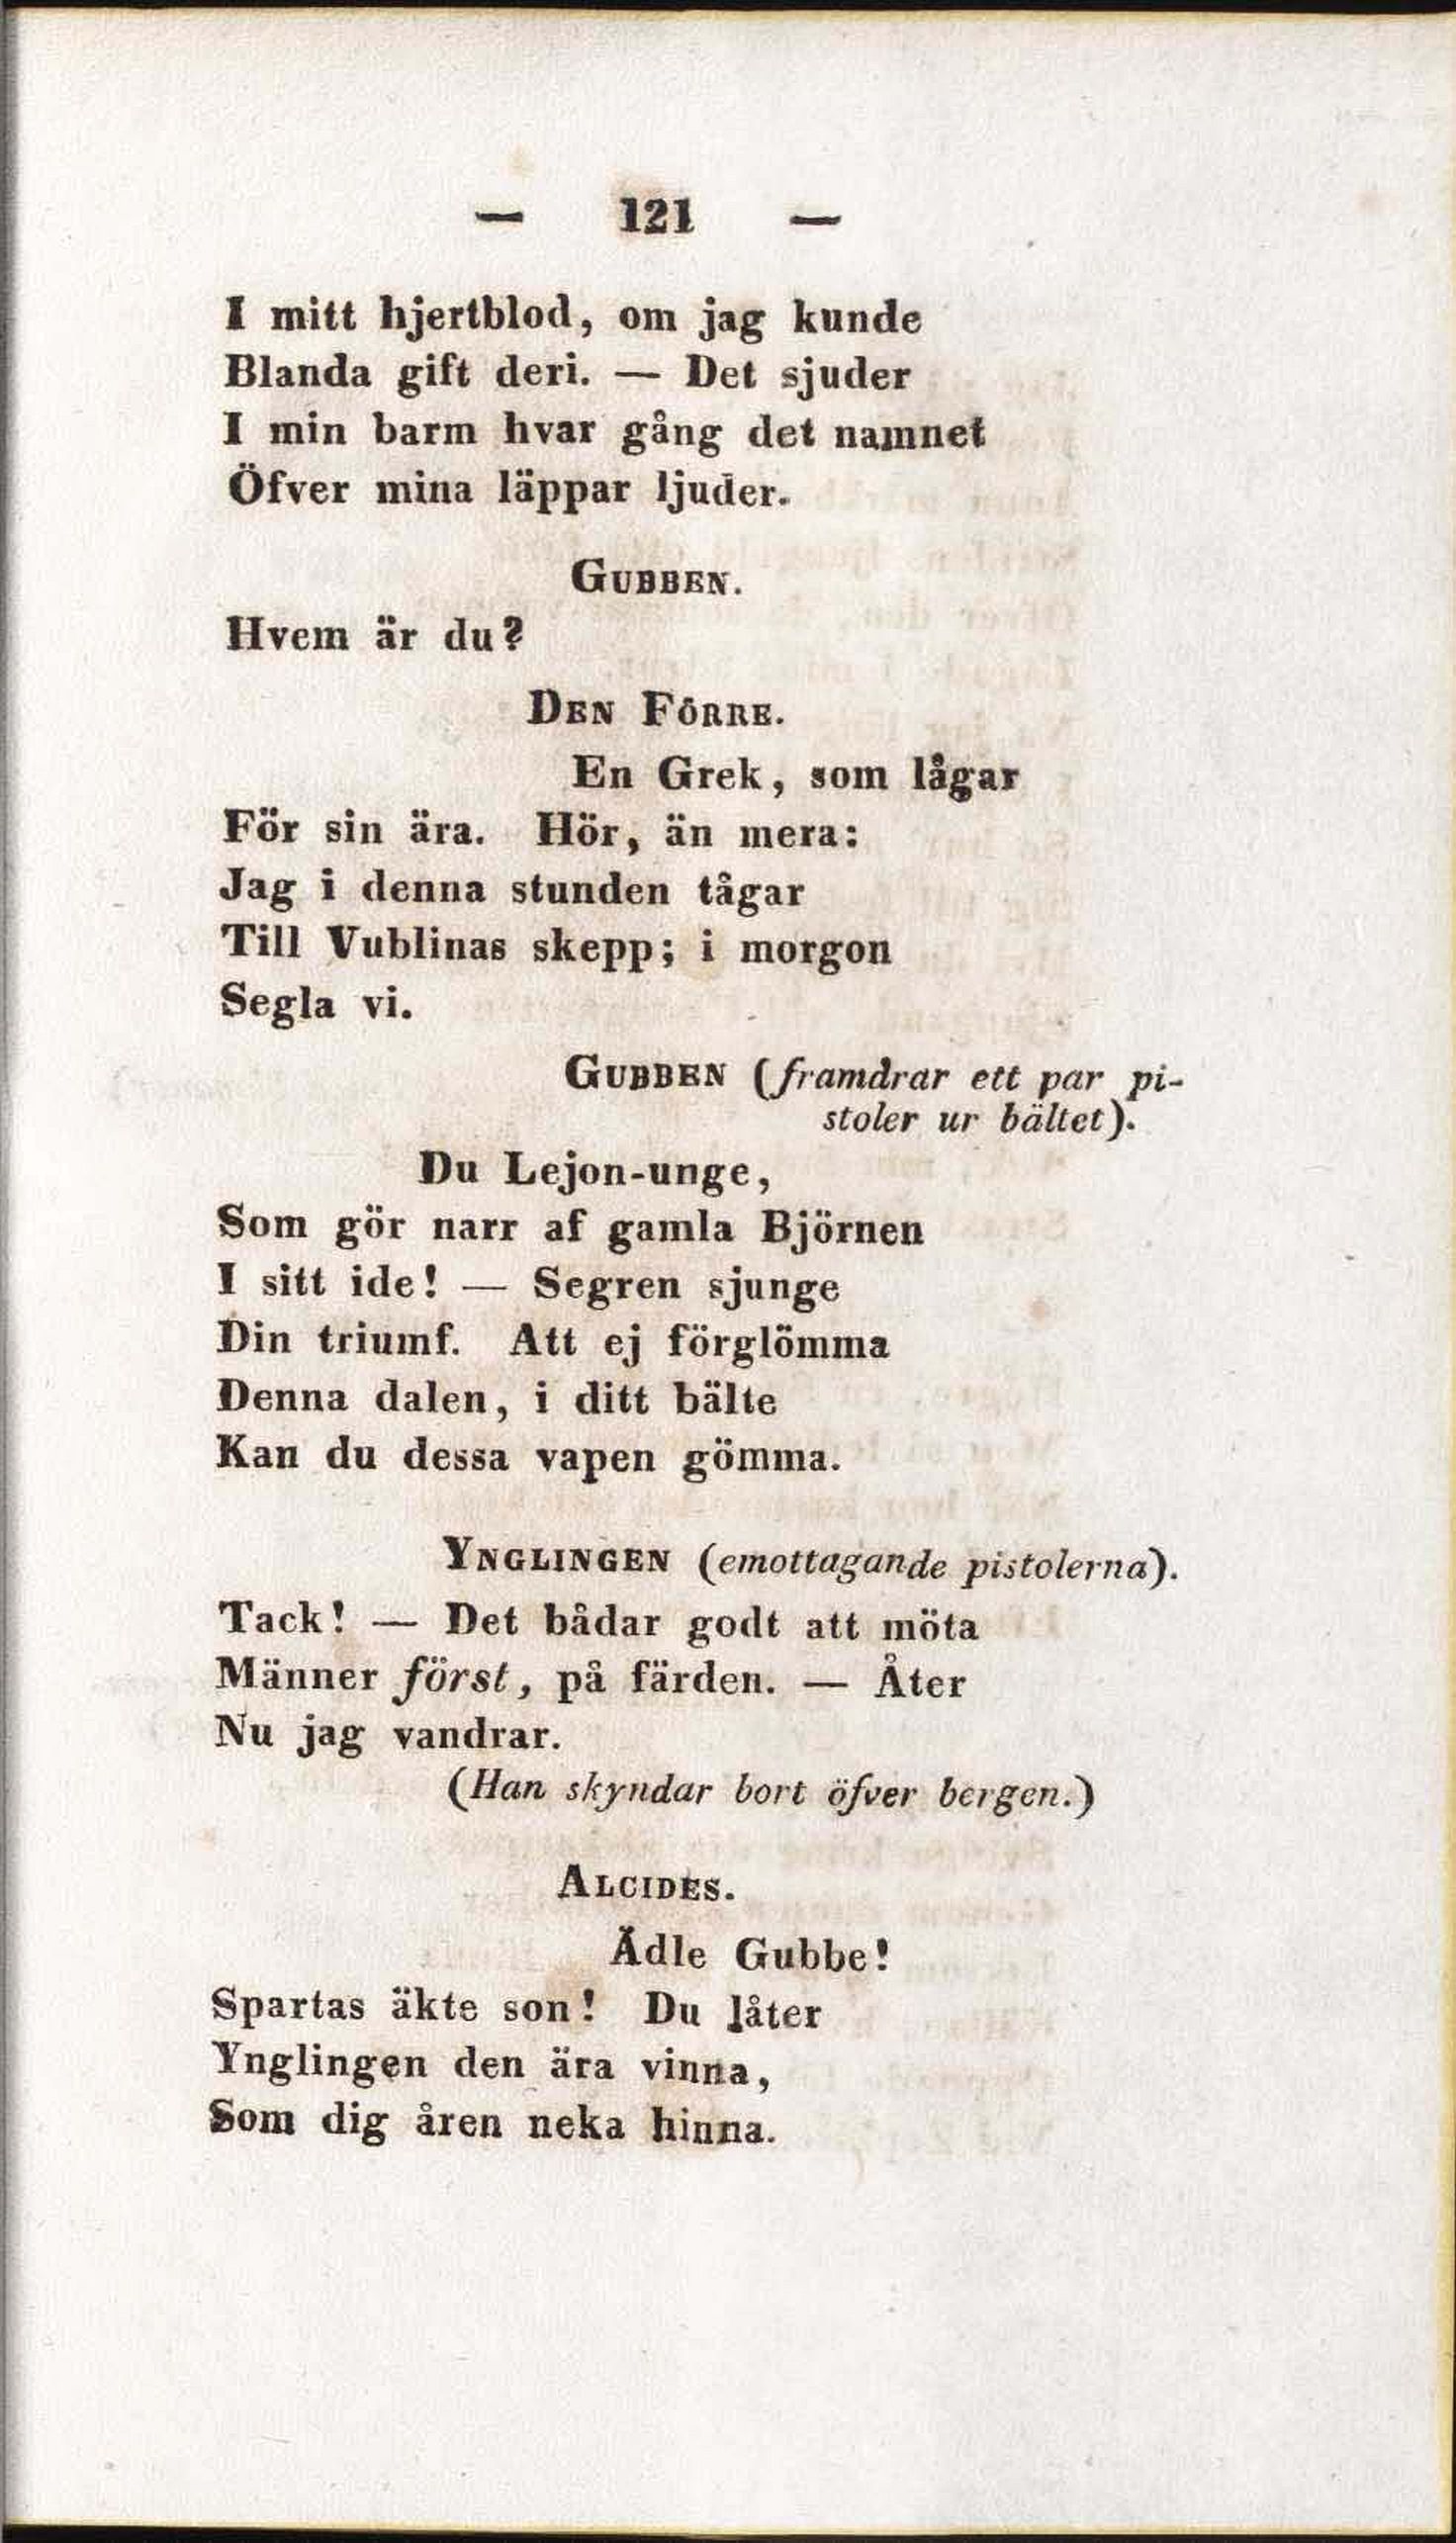 — 121 —
I mitt hjertblod, om jag kunde
Blanda gift deri. — Det sjuder
I min barm hvar gång det namnet
Öfver mina läppar ljuder.
GUBBEN.
Hvem är du?
DEN FÖRRE.
En Grek, som lågar
För sin ära. Hör, än mera:
Jag i denna stunden tågar
Till Vublinas skepp; i morgon
Segla vi.
GUBBEN (framdrar ett par pi-
stoler ur bältet).
Du Lejon-unge,
Som gör narr af gamla Björnen
I sitt ide! — Segren sjunge
Din triumf. Att ej förglömma
Denna dalen, i ditt bälte
Kan du dessa vapen gömma.
YNGLINGEN (emottagande pistolerna).
Tack! — Det bådar godt att möta
Männer först, på färden. — Åter
Nu jag vandrar.
(Han skyndar bort öfver bergen.)
ALCIDES.
Ädle Gubbe!
Spartas äkte son! Du låter
Ynglingen den ära vinna,
Som dig åren neka hinna.